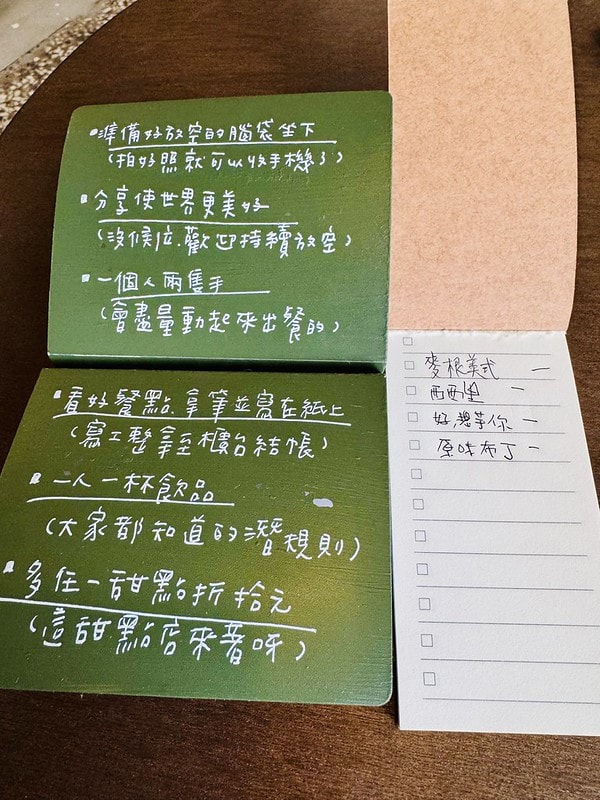 •準備好放空的腦袋坐下
(拍好照就可以收手機了)
▪分享使世界更美好
(沒候位.歡迎持續放空)
▪一個人兩隻手
(會盡量動起來出餐的)
▪看好餐點.拿筆並寫在紙上
(寫工整拿至櫃台結帳)
▪一人一杯飲品
(大家都知道的潛規則)
▪多任一甜點折拾元
(這甜點店來著呀)
麥根美式 一
西西里 一
好想芋你 一
原味布丁 一